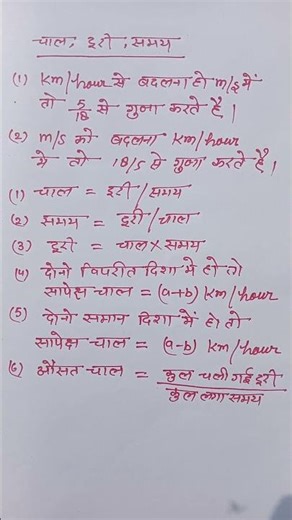 चाल, दूरी, समय
(1) Km/hour से बदलना हो m/s में
तो 5/18 से गुना करते है।
(2) m/s को बदलना Km/hour
मे तो 18/5 से गुना करते है।
(1) चाल = दूरी/समय
(2) समय = दूरी/चाल
(3) दूरी = चाल×समय
(4) दोनो विपरीत दिशा मे हो तो
सापेक्ष चाल = (a+b) Km/hour
(5) दोनो समान दिशा में हो तो
सापेक्ष चाल = (a-b) Km/hour
(6) औसत चाल = कुल चली गई दूरी
कुल लगा समय